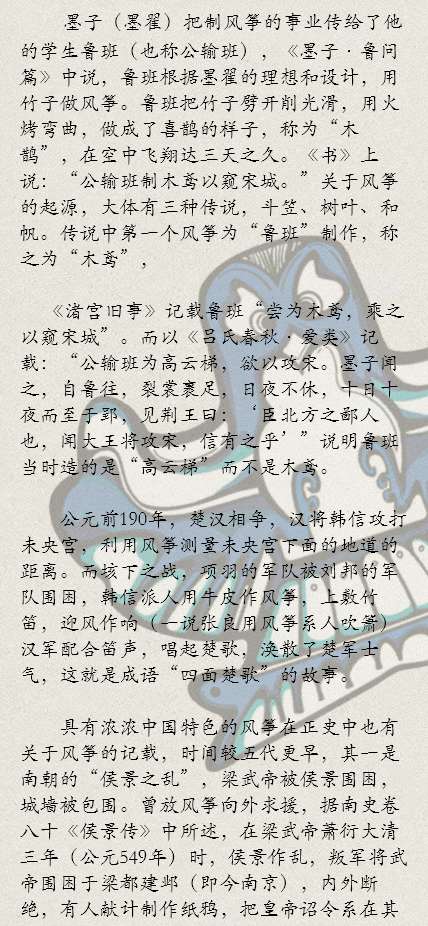 墨子（墨翟）把制风筝的事业传给了他
的学生鲁班（也称公输班），《墨子·鲁问
篇》中说，鲁班根据墨翟的理想和设计，用
竹子做风筝。鲁班把竹子劈开削光滑，用火
烤弯曲，做成了喜鹊的样子，称为“木
鹊”，在空中飞翔达三天之久。《书》上
说：“公输班制木鸢以窥宋城。”关于风筝
的起源，大体有三种传说，斗笠、树叶、和
帆。传说中第一个风筝为“鲁班”制作，称
之为“木鸢”，
《渚宫旧事》记载鲁班“尝为木鸢，乘之
以窥宋城”。而以《吕氏春秋·爱类》记
载：“公输班为高云梯，欲以攻宋。墨子闻
之，自鲁往，裂裳裹足，日夜不休，十日十
夜而至于郢，见荆王曰：‘臣北方之鄙人
也，闻大王将攻宋，信有之乎’”说明鲁班
当时造的是“高云梯”而不是木鸢。
公元前190年，楚汉相争，汉将韩信攻打
未央宫，利用风筝测量未央宫下面的地道的
距离。而垓下之战，项羽的军队被刘邦的军
队围困，韩信派人用牛皮作风筝，上敷竹
笛，迎风作响（一说张良用风筝系人吹箫）
汉军配合笛声，唱起楚歌，涣散了楚军士
气，这就是成语“四面楚歌”的故事。
具有浓浓中国特色的风筝在正史中也有
关于风筝的记载，时间较五代更早，其一是
南朝的“侯景之乱”，梁武帝被侯景围困，
城墙被包围。曾放风筝向外求援，据南史卷
八十《侯景传》中所述，在梁武帝萧衍大清
三年（公元549年）时，侯景作乱，叛军将武
帝围困于梁都建邺（即今南京），内外断
绝，有人献计制作纸鸦，把皇帝诏令系在其